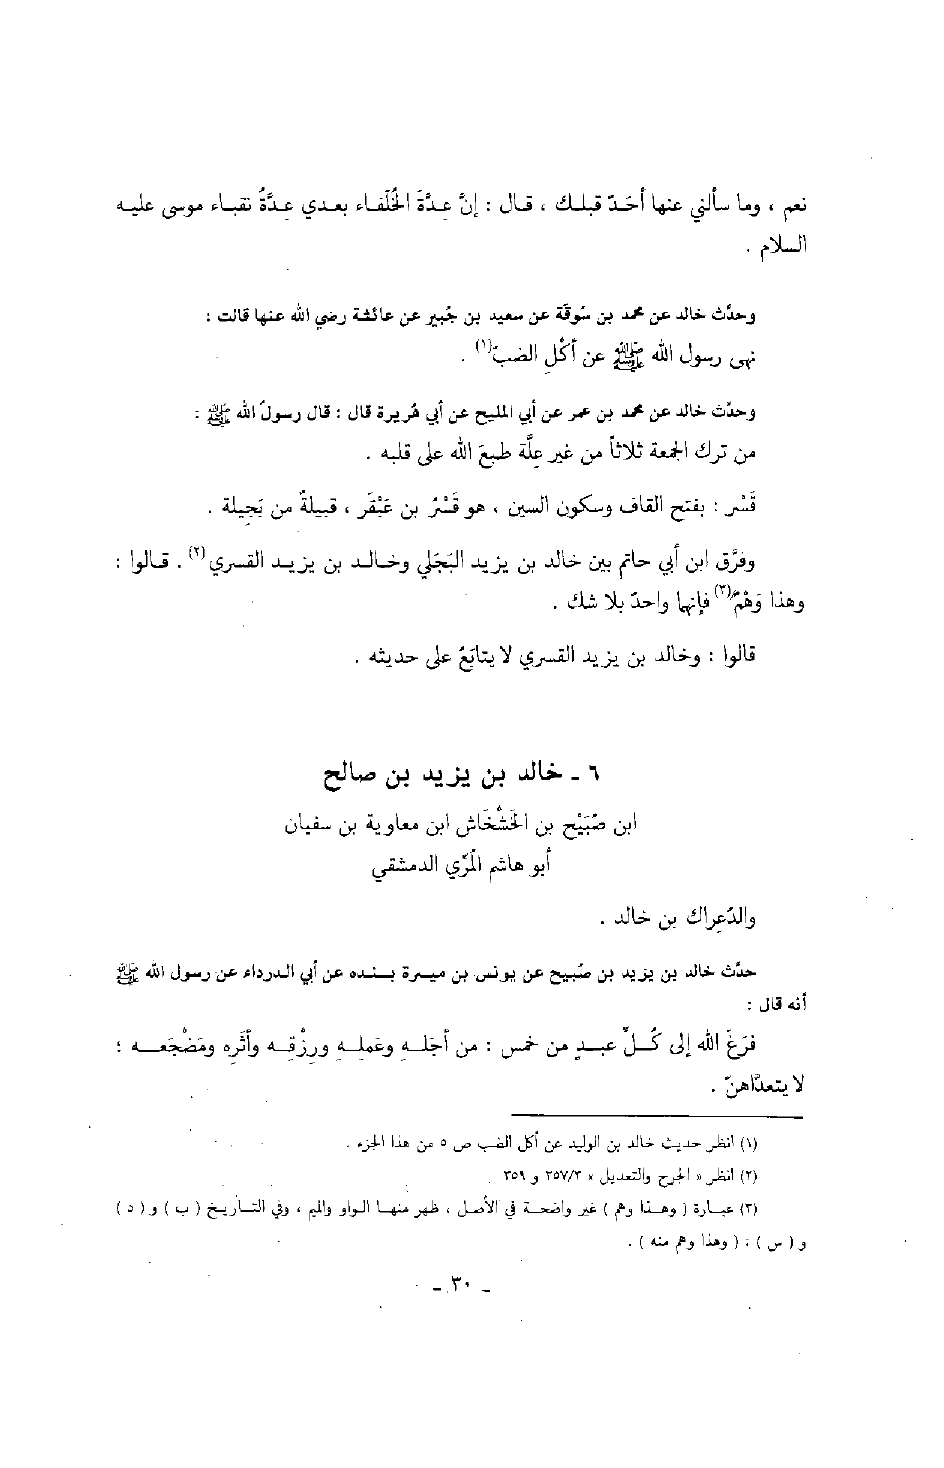 نعم ، وما سألني عنها أحَدٌ قبلك ، قال : إنَّ عِدَّةَ الخُلَفاء بعدي عِدَّةُ نقباء موسى عليه
السلام .
وحدَّث خالد عن محمد بن سُوقَة عن سعيد بن جُبير عن عائشة رضي الله عنها قالت :
نهى رسول الله ﷺ عن أكْلِ الضبّ(١) .
وحدَّث خالد عن محمد بن عمر عن أبي المليح عن أبي هُريرة قال : قال رسولُ الله ﷺ :
من ترك الجمعة ثلاثاً من غير عِلَّة طبعَ الله على قلبه .
قَسْر : بفتح القاف وسكون السين ، هو قَسْرُ بن عَبْقَر ، قبيلةٌ من بَجيلة .
وفرَّق ابن أبي حاتم بين خالد بن يزيد البَجَلي وخالد بن يزيد القسري(٢) . قالوا :
وهذا وَهْمٌ(٣) فإنها واحدٌ بلا شك .
قالوا : وخالد بن يزيد القسري لا يتابَعُ على حديثه .
٦ ـ خالد بن يزيد بن صالح
ابن صُبَيْح بن الخَشْخَاش ابن معاوية بن سفيان
أبو هاشم المُرّي الدمشقي
والدُ عِراك بن خالد .
حدَّث خالد بن يزيد بن صُبيح عن يونس بن ميسرة بسنده عن أبي الدرداء عن رسول الله ﷺ
أنه قال :
فَرَغَ الله إلى كُلِّ عبدٍ من خمس : من أجَلهِ وعَملهِ ورِزْقِه وأثَرِه ومَضْجَعه ؛
لا يتعدَّاهنّ .
(١) انظر حديث خالد بن الوليد عن أكل الضب ص ٥ من هذا الجزء .
(٢) انظر « الجرح والتعديل » ٣‏/٢٥٧ و ٣٥٩ .
(٣) عبارة ( وهذا وهم ) غير واضحة في الأصل ، ظهر منها الواو والميم ، وفي التاريخ ( ب ) و ( د )
و ( س ) : ( وهذا وهم منه ) .
ـ ٣٠ ـ